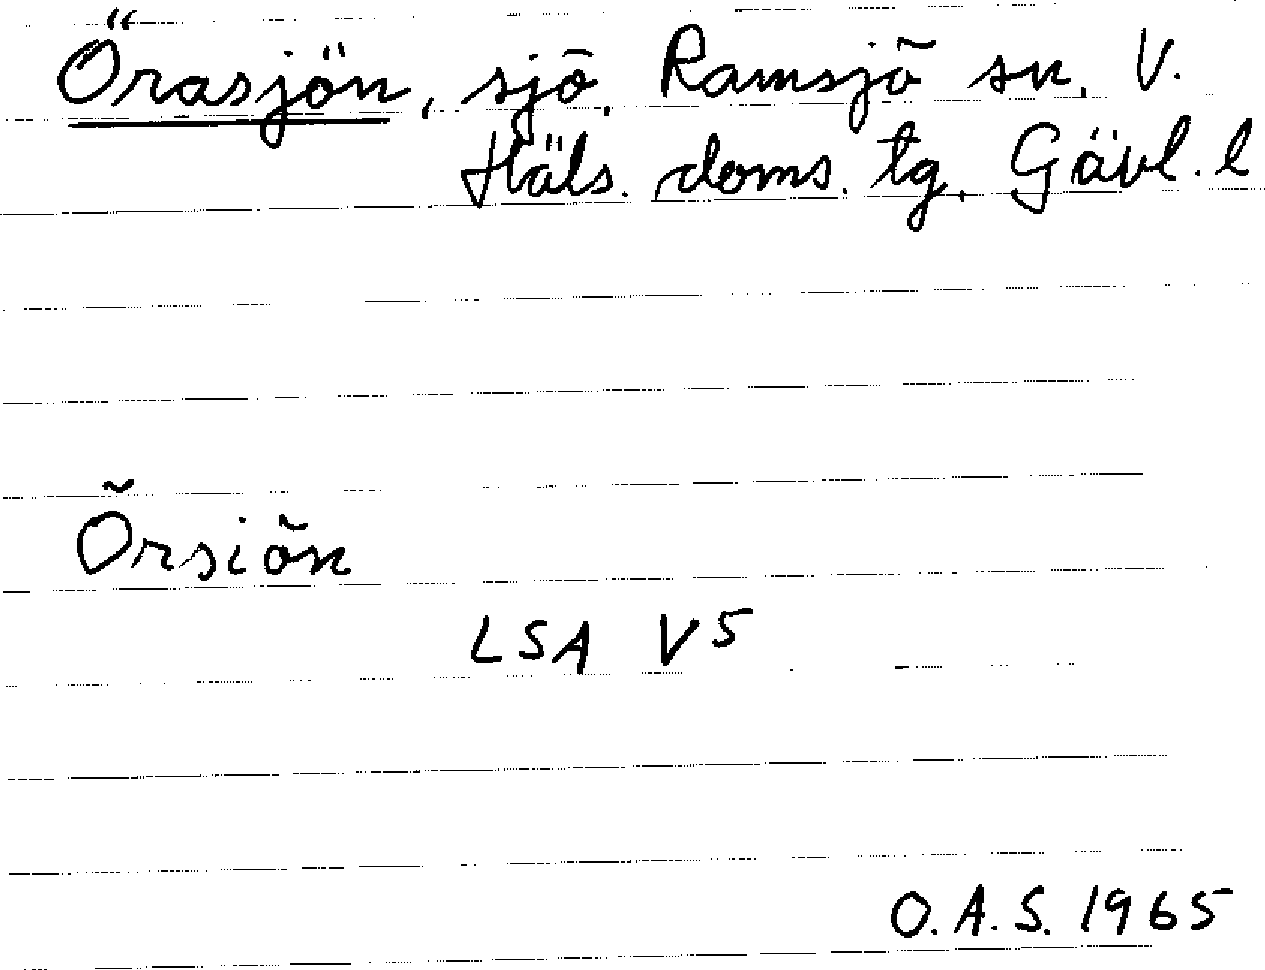 Örasjön, sjö, Ramsjö sn. V.
Häls. doms. tg. Gävl. l
Örsiön
LSA V5
O.A.S. 1965